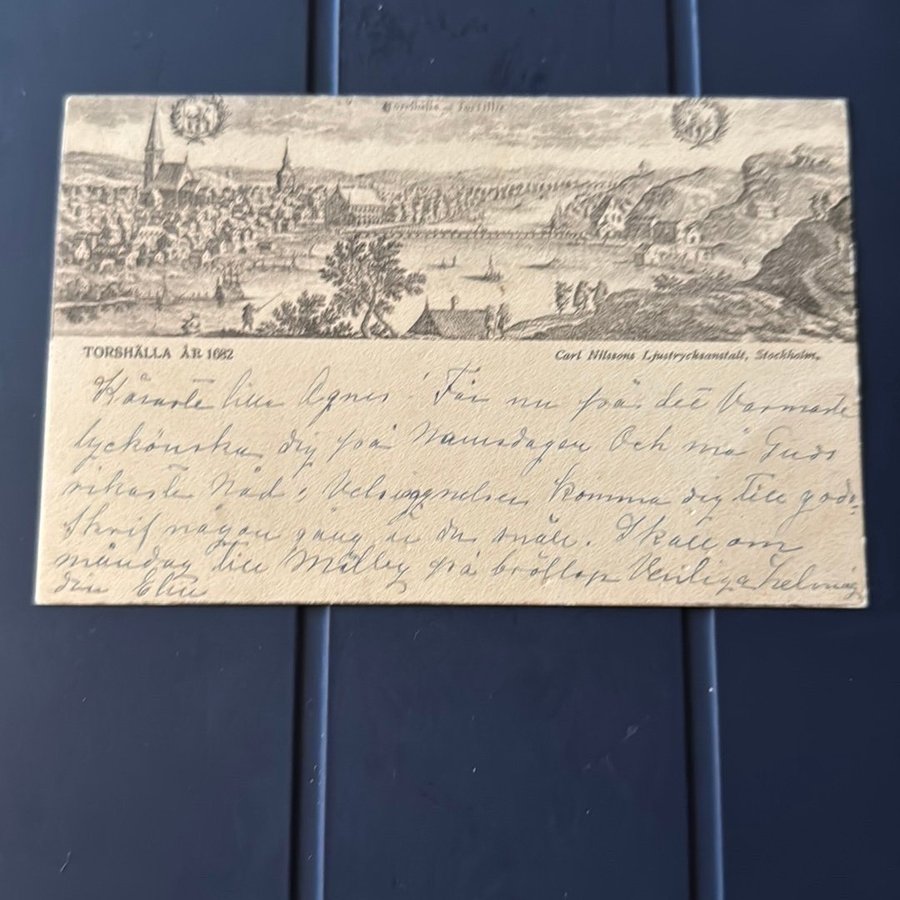 TORSHÄLLA ÅR 1682
Carl Nilssons Ljustrycksanstalt, Stockholm.
Käraste lilla Agnes! Får nu på det Varmaste
lyckönska dig på Namsdagen Och må Guds
rikaste Nåd, Velsignelse komma dig till godo.
Skrif någon gång är du snäll. Skall om
måndag till Mälby på bröllop Venliga helsning
din Elin